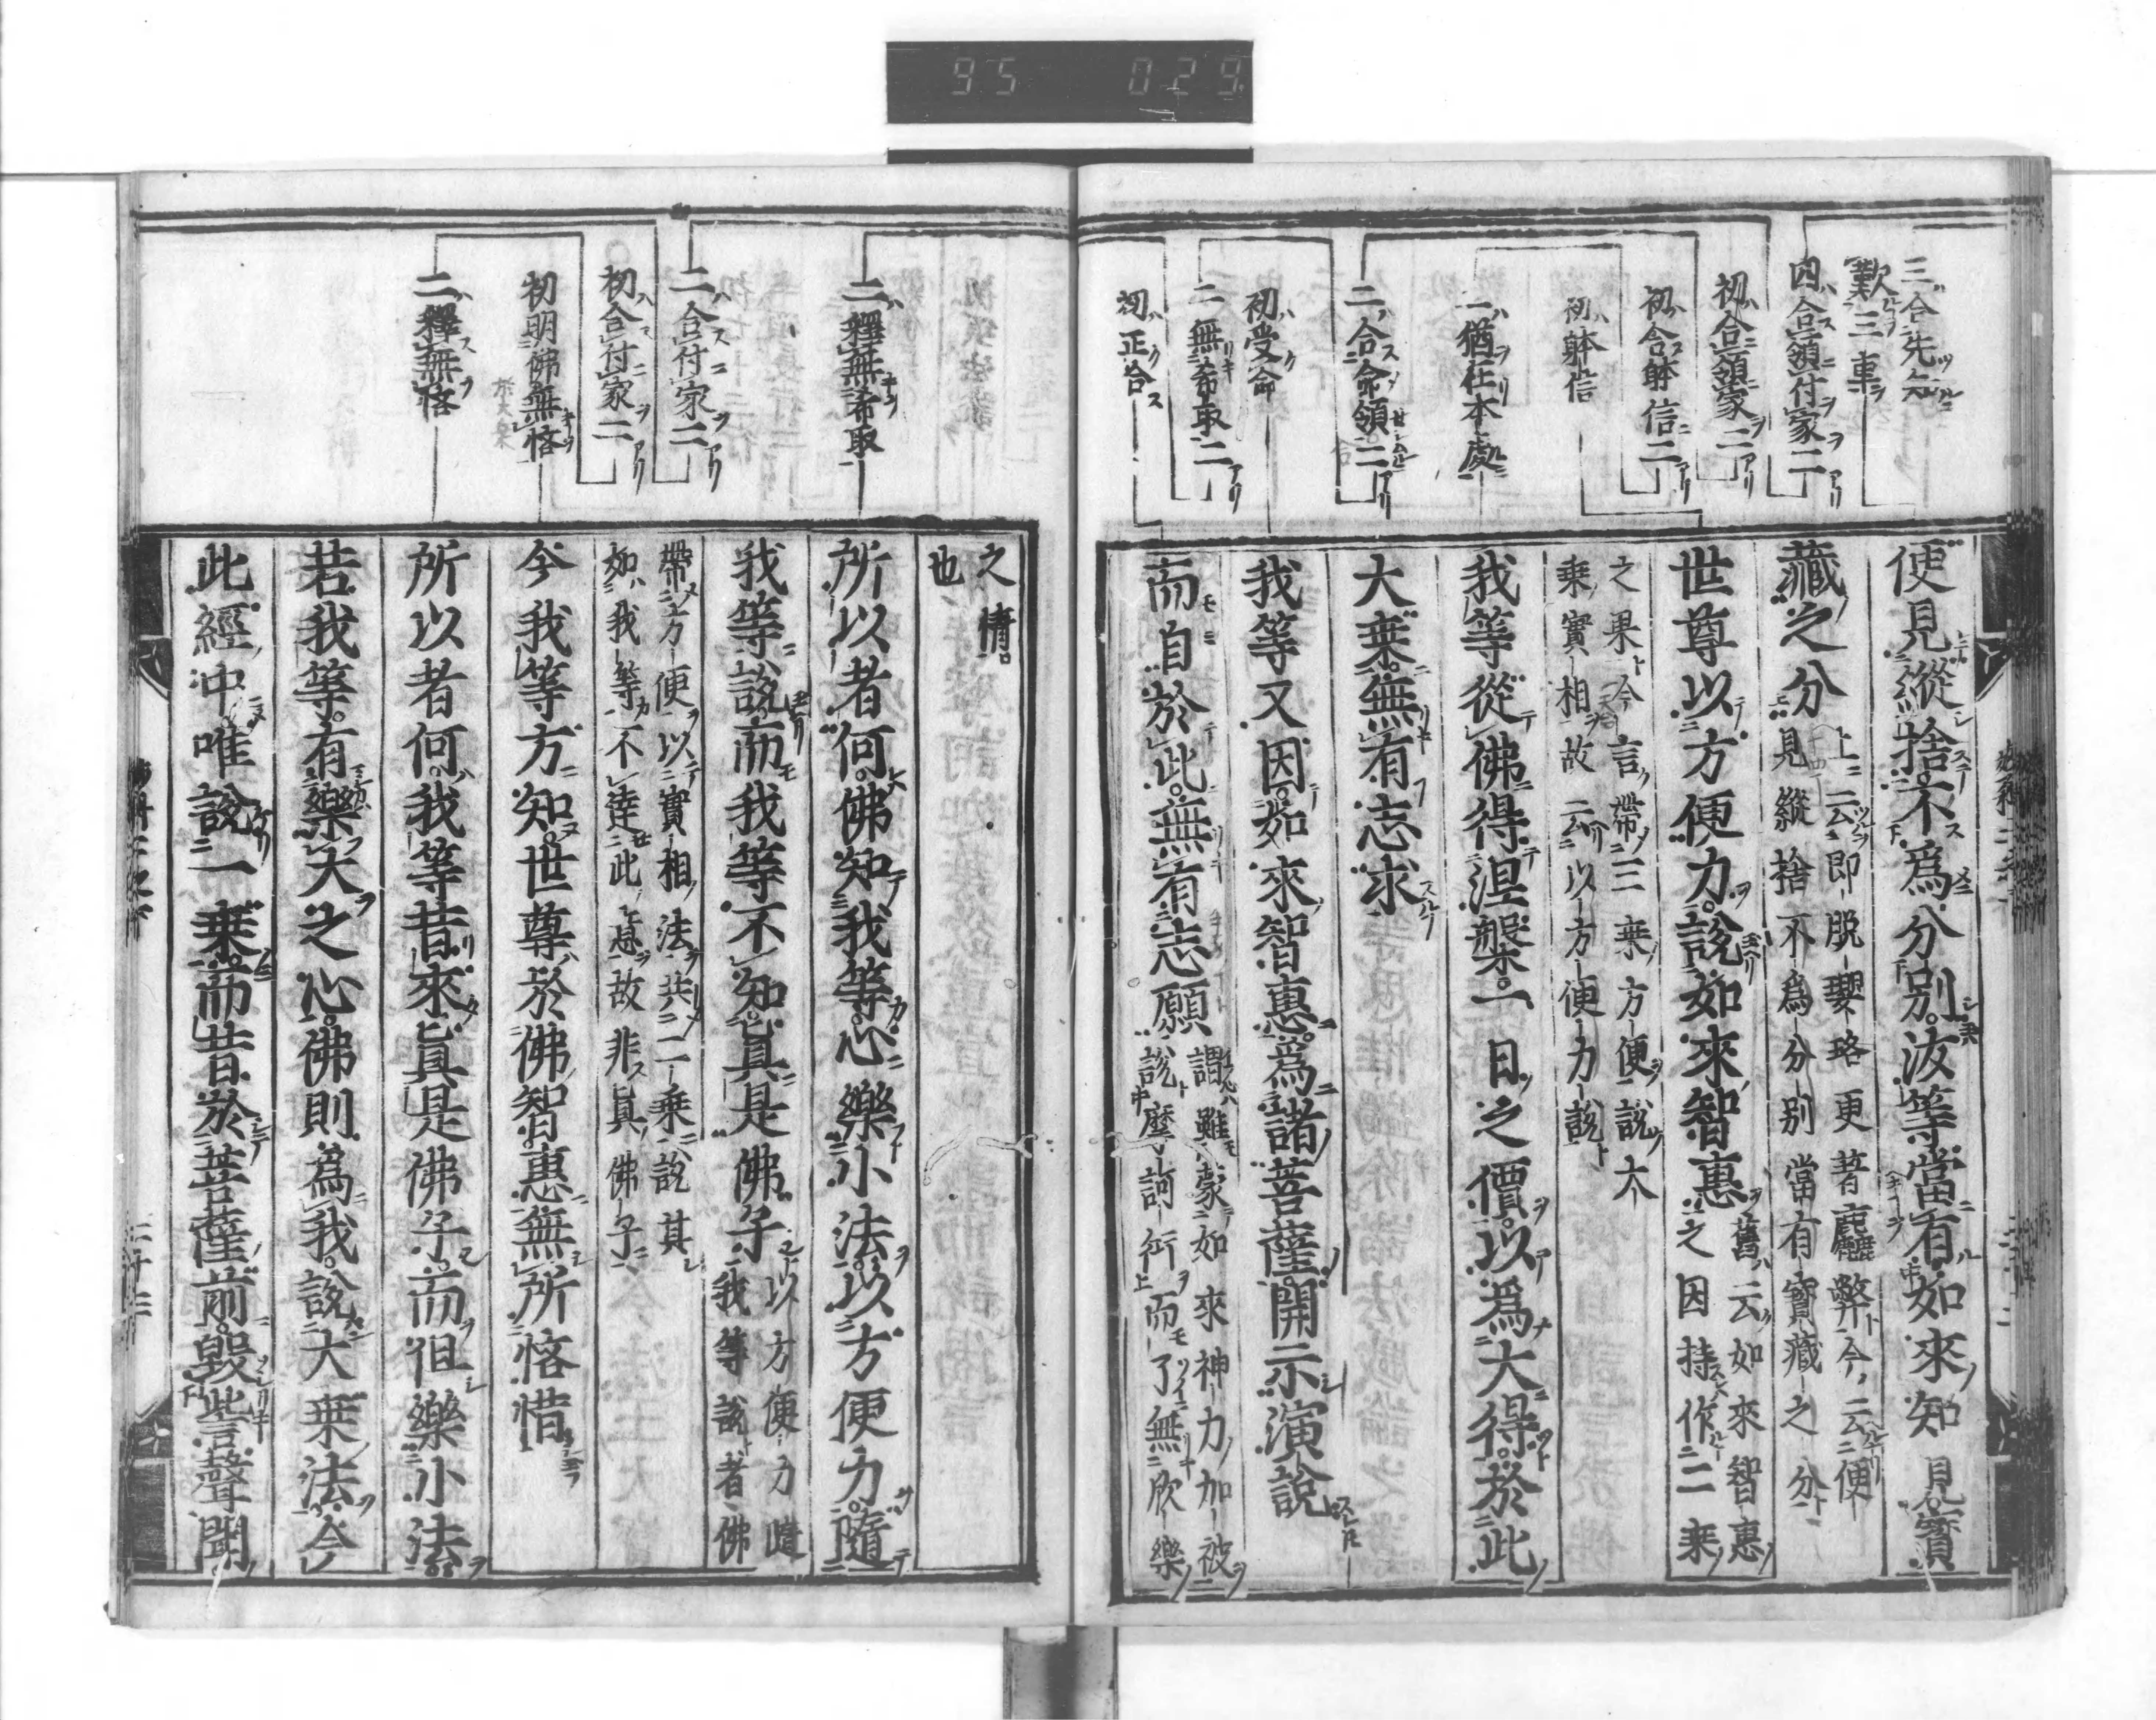 95 029
三合先知
歎三車
四合領付家二
初合領家二
初合躰信二
初躰信
二猶在本處
二合命領二
初受命
二無希取二
初正合
便見縱捨不爲分別汝等當有如來知見寶
藏之分
上云即脫瓔珞更著麤弊今云便
見縱捨不爲分別當有寶藏之分
世尊以方便力說如來智惠
舊云如來智惠
之因持作二乘
之果今言帶三乘方便說大
乘實相故云以方便力說
我等從佛得涅槃一日之價以爲大得於此
大乘無有志求
我等又因如來智惠爲諸菩薩開示演說
而自於此無有志願
謂雖蒙如來神力加被
說摩訶衍而了無欣樂
二釋無希取
二合付家二
初合付家二
初明佛無悋
二釋無悋
之情
也
所以者何佛知我等心樂小法以方便力隨
我等說而我等不知眞是佛子
以方便力隨
我等說者佛
帶方便以實相法共二乘說其
如我等不達此意故非眞佛子
今我等方知世尊於佛智惠無所悋惜
所以者何我等昔來眞是佛子而但樂小法
若我等有樂大之心佛則爲我說大乘法今
此經中唯說一乘而昔於菩薩前毀呰聲聞